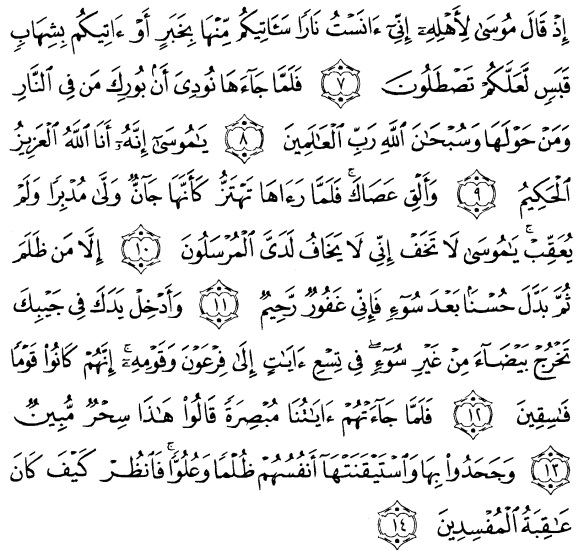 إِذْ قَالَ مُوسَىٰ لِأَهْلِهِۦٓ إِنِّىٓ ءَانَسْتُ نَارًا سَـَٔاتِيكُم مِّنْهَا بِخَبَرٍ أَوْ ءَاتِيكُم بِشِهَابٍ
قَبَسٍ لَّعَلَّكُمْ تَصْطَلُونَ ٧ فَلَمَّا جَآءَهَا نُودِىَ أَنۢ بُورِكَ مَن فِى ٱلنَّارِ
وَمَنْ حَوْلَهَا وَسُبْحَـٰنَ ٱللَّهِ رَبِّ ٱلْعَـٰلَمِينَ ٨ يَـٰمُوسَىٰٓ إِنَّهُۥٓ أَنَا ٱللَّهُ ٱلْعَزِيزُ
ٱلْحَكِيمُ ٩ وَأَلْقِ عَصَاكَ ۚ فَلَمَّا رَءَاهَا تَهْتَزُّ كَأَنَّهَا جَآنٌّ وَلَّىٰ مُدْبِرًا وَلَمْ
يُعَقِّبْ ۚ يَـٰمُوسَىٰ لَا تَخَفْ إِنِّى لَا يَخَافُ لَدَىَّ ٱلْمُرْسَلُونَ ١٠ إِلَّا مَن ظَلَمَ
ثُمَّ بَدَّلَ حُسْنًۢا بَعْدَ سُوٓءٍ فَإِنِّى غَفُورٌ رَّحِيمٌ ١١ وَأَدْخِلْ يَدَكَ فِى جَيْبِكَ
تَخْرُجْ بَيْضَآءَ مِنْ غَيْرِ سُوٓءٍ ۖ فِى تِسْعِ ءَايَـٰتٍ إِلَىٰ فِرْعَوْنَ وَقَوْمِهِۦٓ ۚ إِنَّهُمْ كَانُوا۟ قَوْمًا
فَـٰسِقِينَ ١٢ فَلَمَّا جَآءَتْهُمْ ءَايَـٰتُنَا مُبْصِرَةً قَالُوا۟ هَـٰذَا سِحْرٌ مُّبِينٌ
١٣ وَجَحَدُوا۟ بِهَا وَٱسْتَيْقَنَتْهَآ أَنفُسُهُمْ ظُلْمًا وَعُلُوًّا ۚ فَٱنظُرْ كَيْفَ كَانَ
عَـٰقِبَةُ ٱلْمُفْسِدِينَ ١٤